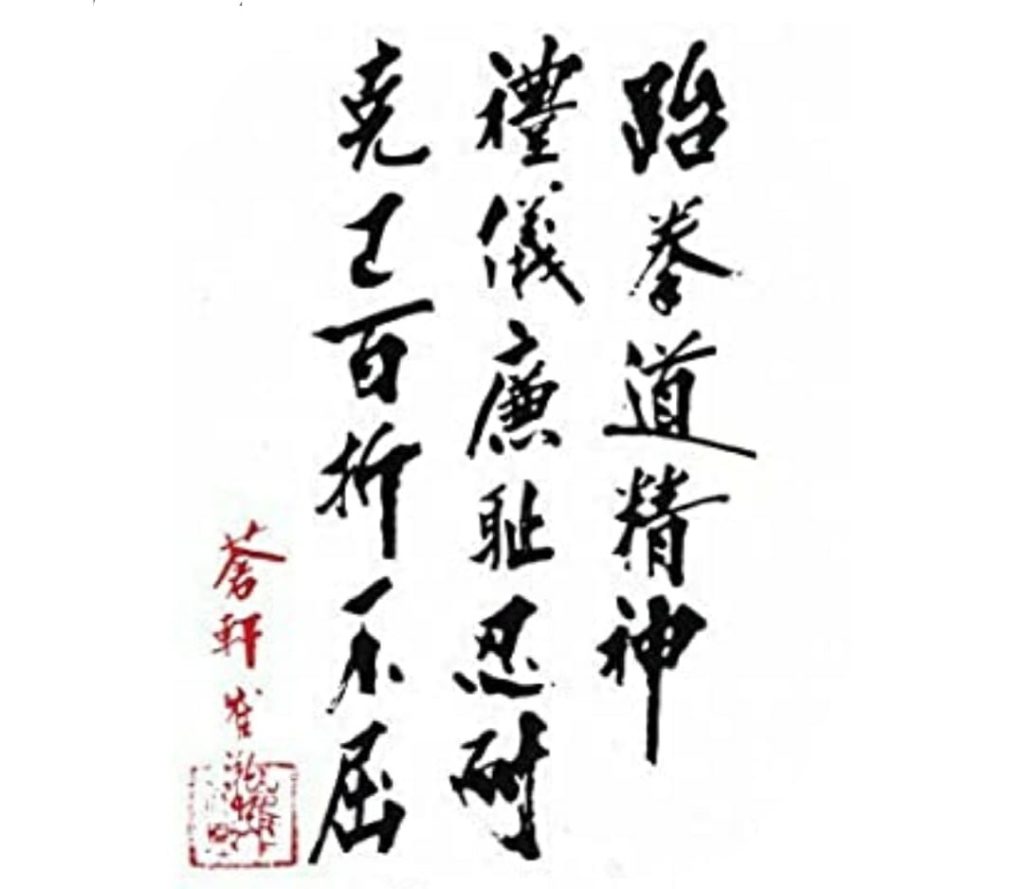 跆拳道精神
禮儀廉耻忍耐
克己百折不屈
蒼軒 崔泓熙